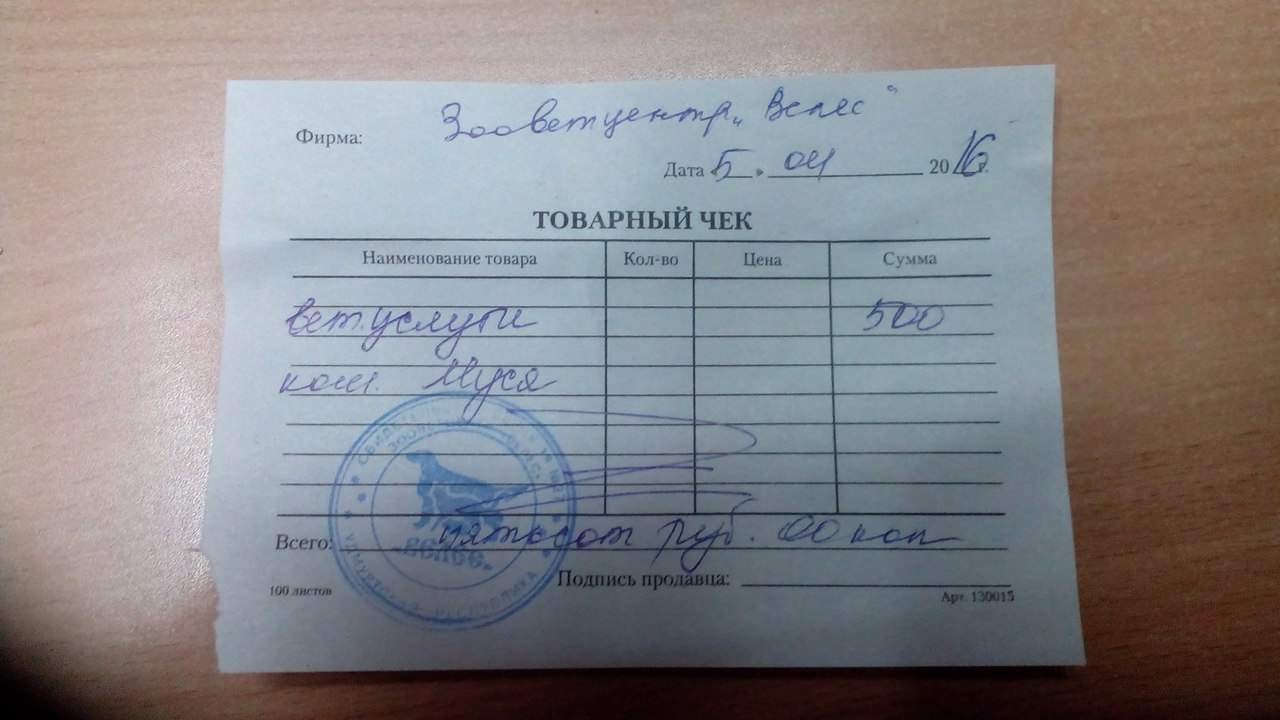 Фирма: Зооветцентр „Велес"
Дата «5» 04 2016 г.
ТОВАРНЫЙ ЧЕК
Наименование товара Кол-во Цена Сумма
вет.услуги 500
кош. Муся
Всего: пятьсот руб. 00 коп
Подпись продавца:
100 листов Арт. 130015
ВЕЛЕС.
УДМУРТСКАЯ РЕСПУБЛИКА